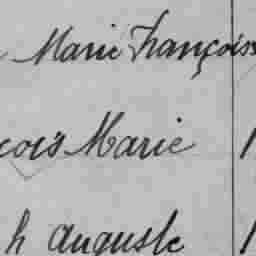 Marie François
çois Marie
h Auguste